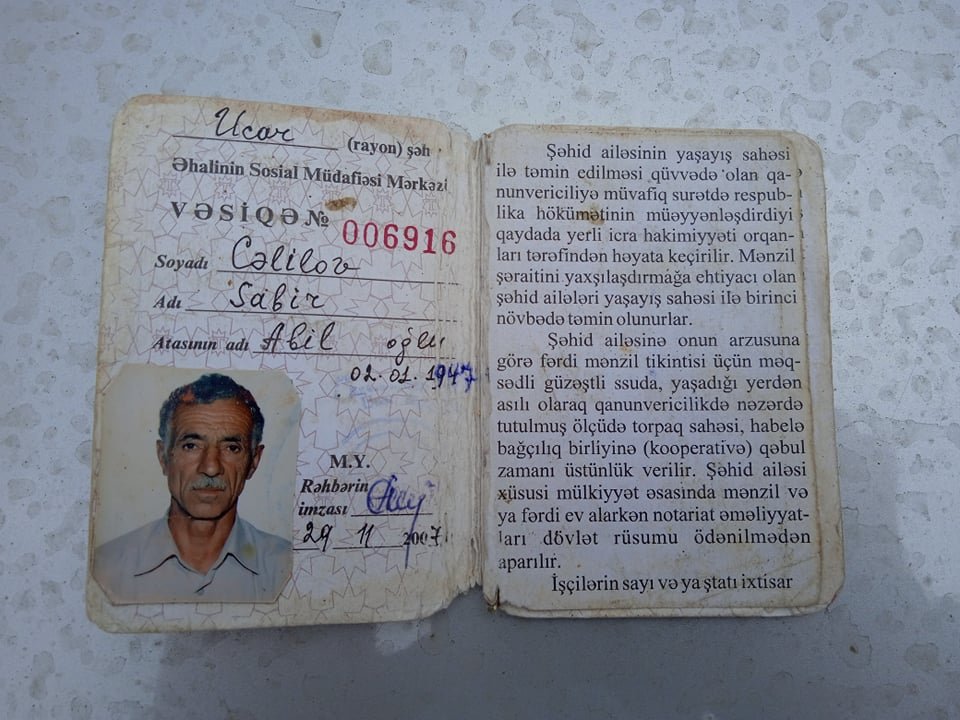 Ucar (rayon) şəh
Əhalinin Sosial Müdafiəsi Mərkəzi
VƏSİQƏ №
006916
Soyadı Cəlilov
Adı Sabir
Atasının adı Abil oğlu
02.01.1947
M.Y.
Rəhbərin
imzası
29 11 2007
Şəhid ailəsinin yaşayış sahəsi
ilə təmin edilməsi qüvvədə olan qa-
nunvericiliyə müvafiq surətdə respub-
lika hökümətinin müəyyənləşdirdiyi
qaydada yerli icra hakimiyyəti orqan-
ları tərəfindən həyata keçirilir. Mənzil
şəraitini yaxşılaşdırmağa ehtiyacı olan
şəhid ailələri yaşayış sahəsi ilə birinci
növbədə təmin olunurlar.
Şəhid ailəsinə onun arzusuna
görə fərdi mənzil tikintisi üçün məq-
sədli güzəştli ssuda, yaşadığı yerdən
asılı olaraq qanunvericilikdə nəzərdə
tutulmuş ölçüdə torpaq sahəsi, habelə
bağçılıq birliyinə (kooperativə) qəbul
zamanı üstünlük verilir. Şəhid ailəsi
xüsusi mülkiyyət əsasında mənzil və
ya fərdi ev alarkən notariat əməliyyat-
ları dövlət rüsumu ödənilmədən
aparılır.
İşçilərin sayı və ya ştatı ixtisar